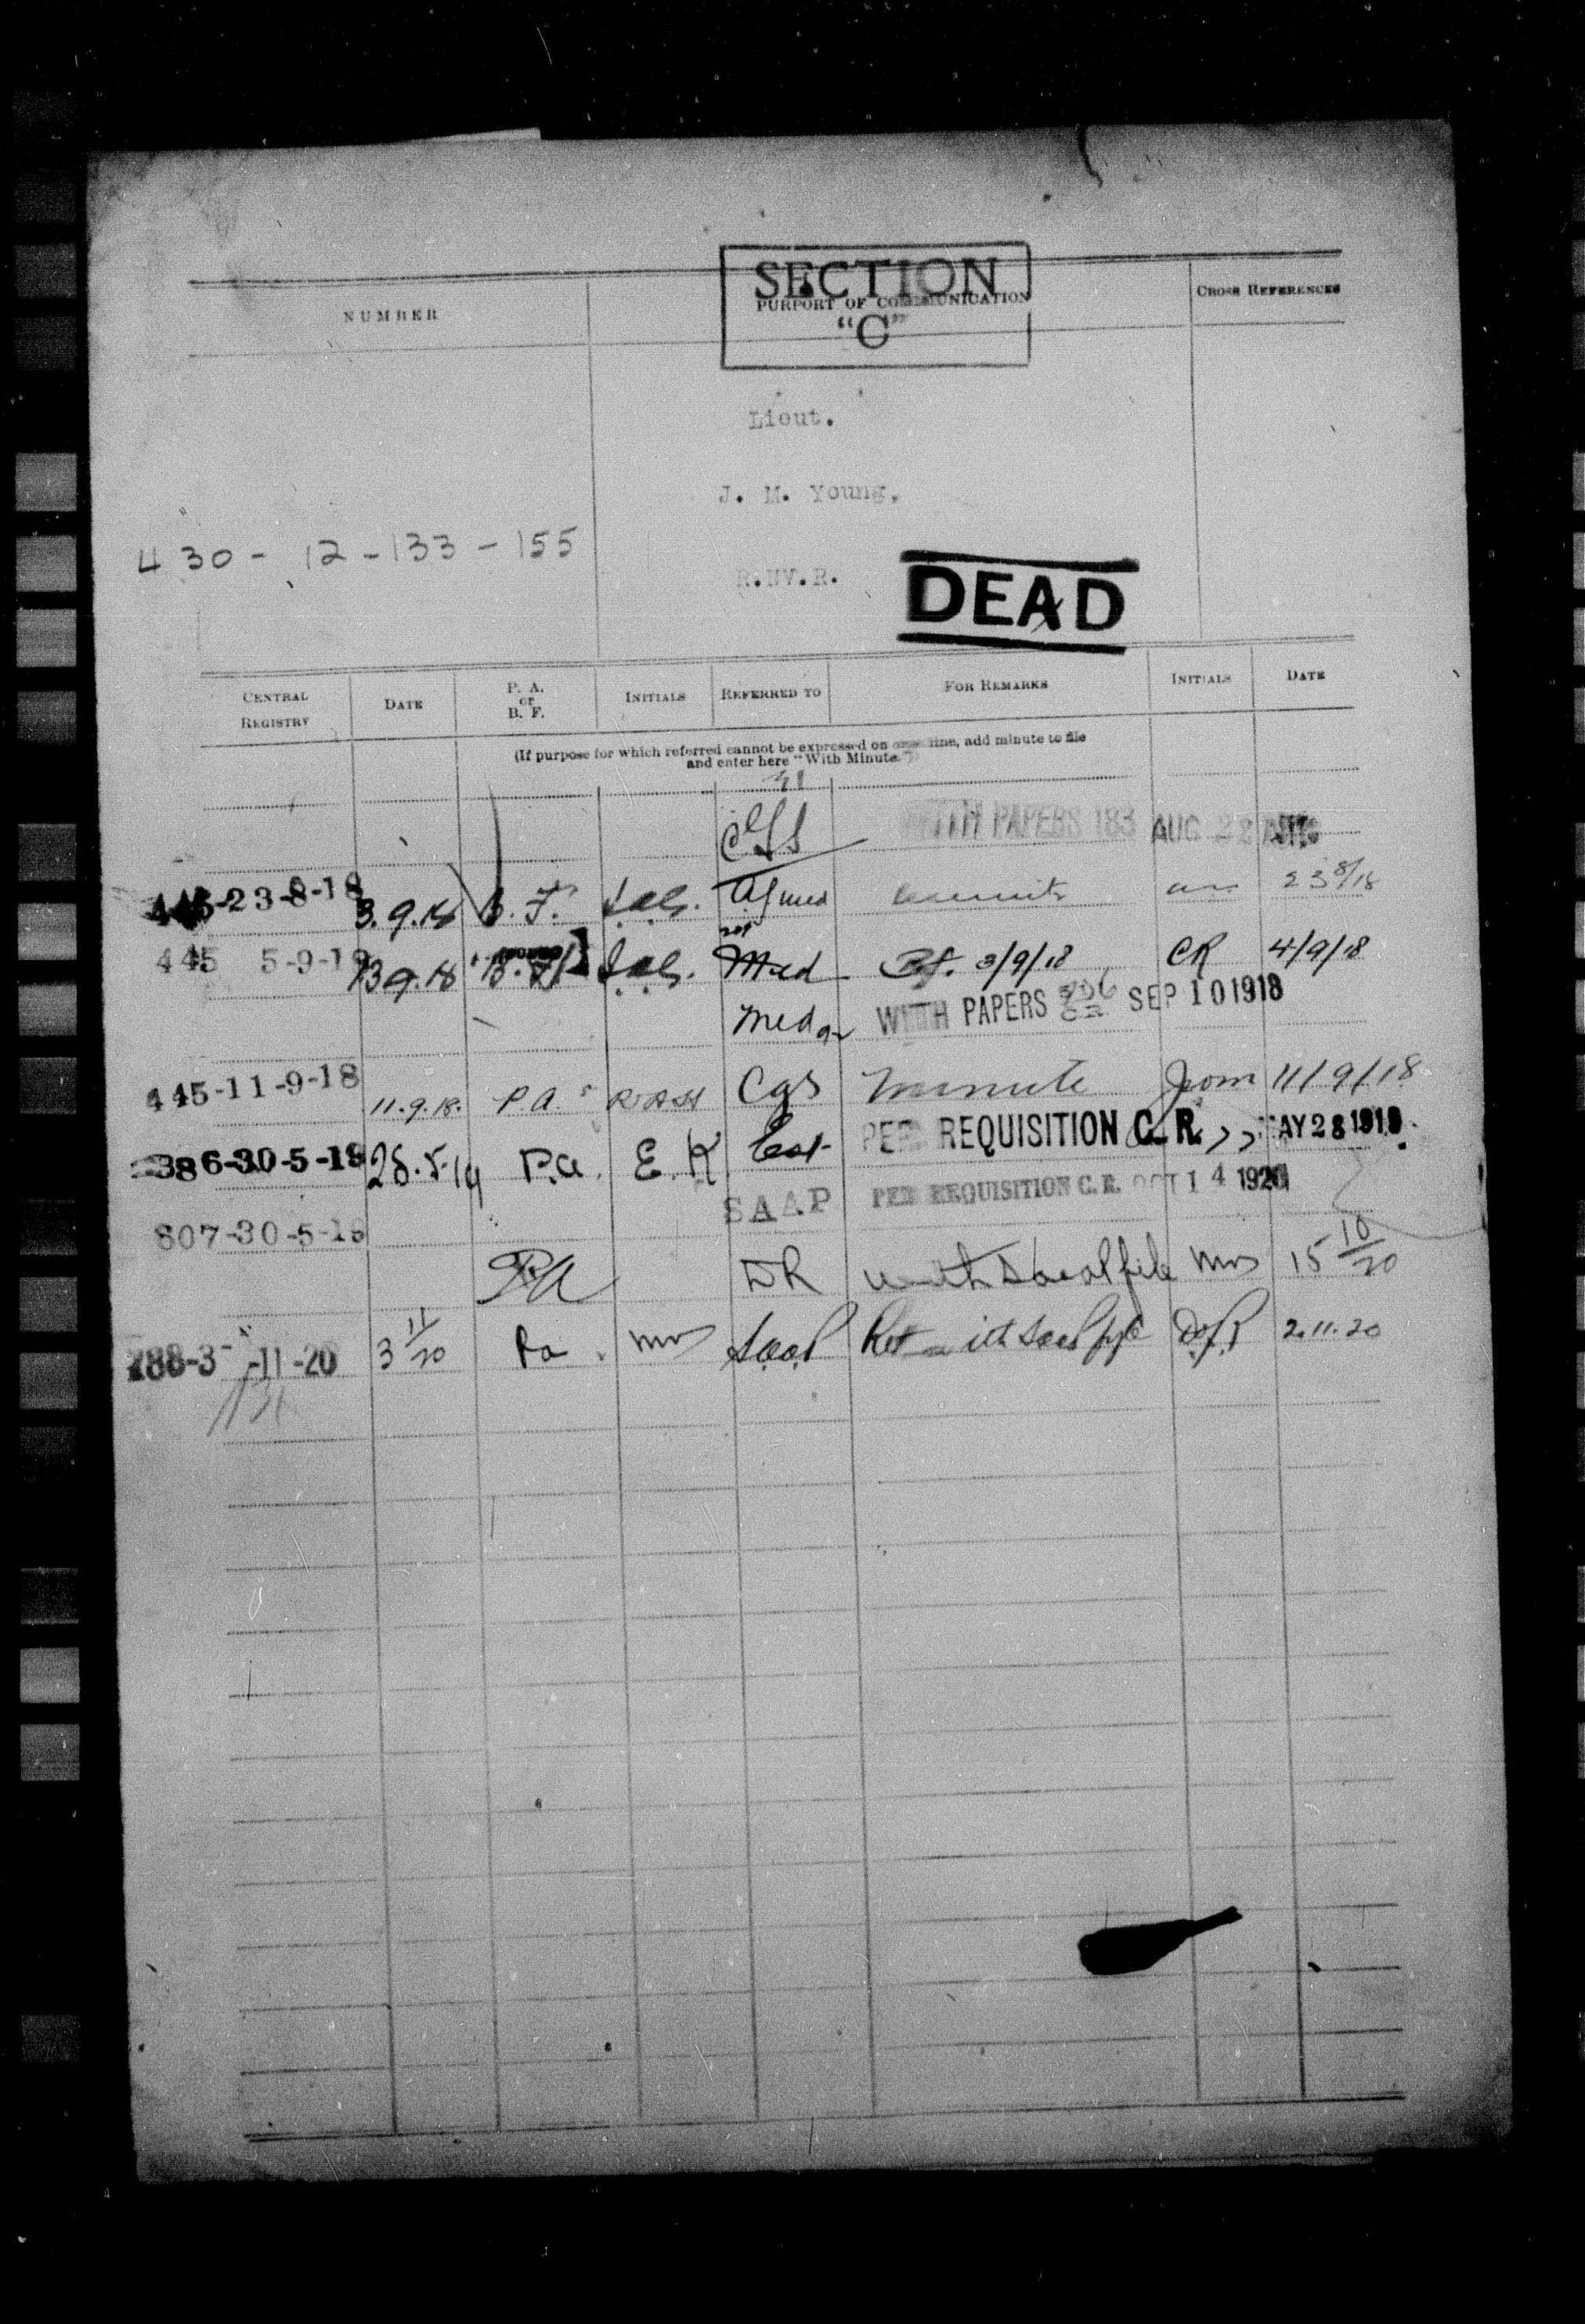 SECTION
NUMBER PURPORT OF COMMUNICATION CROSS REFERENCES
"C"
Lieut.
J. M. Young.
430 - 12 - 133 - 155
R.NV.R.
DEAD
CENTRAL REGISTRY DATE P. A. or B. F. INITIALS REFERRED TO FOR REMARKS INITIALS DATE
(If purpose for which referred cannot be expressed on one line, add minute to file
and enter here "With Minute.")
CGS WITH PAPERS 183 AUG 22
445-23-8-18 3.9.18 B.F. 23 8/18
445 5-9-18 13.9.18 B.F. Med B.F. 3/9/18 CR 4/9/18
Med WITH PAPERS SEP 10 1918
445-11-9-18 11.9.18. P.A. CGS Minute 11/9/18
386-30-5-19 28.5.19 P.A. E.K PER REQUISITION C. R. MAY 28 1919
SAAP PER REQUISITION C. R. OCT 14 1920
807-30-5-19
PA DR with Saap file 15 10/20
288-3-11-20 3 11/20 Pa. SAAP Ret with Saap file 2.11.20